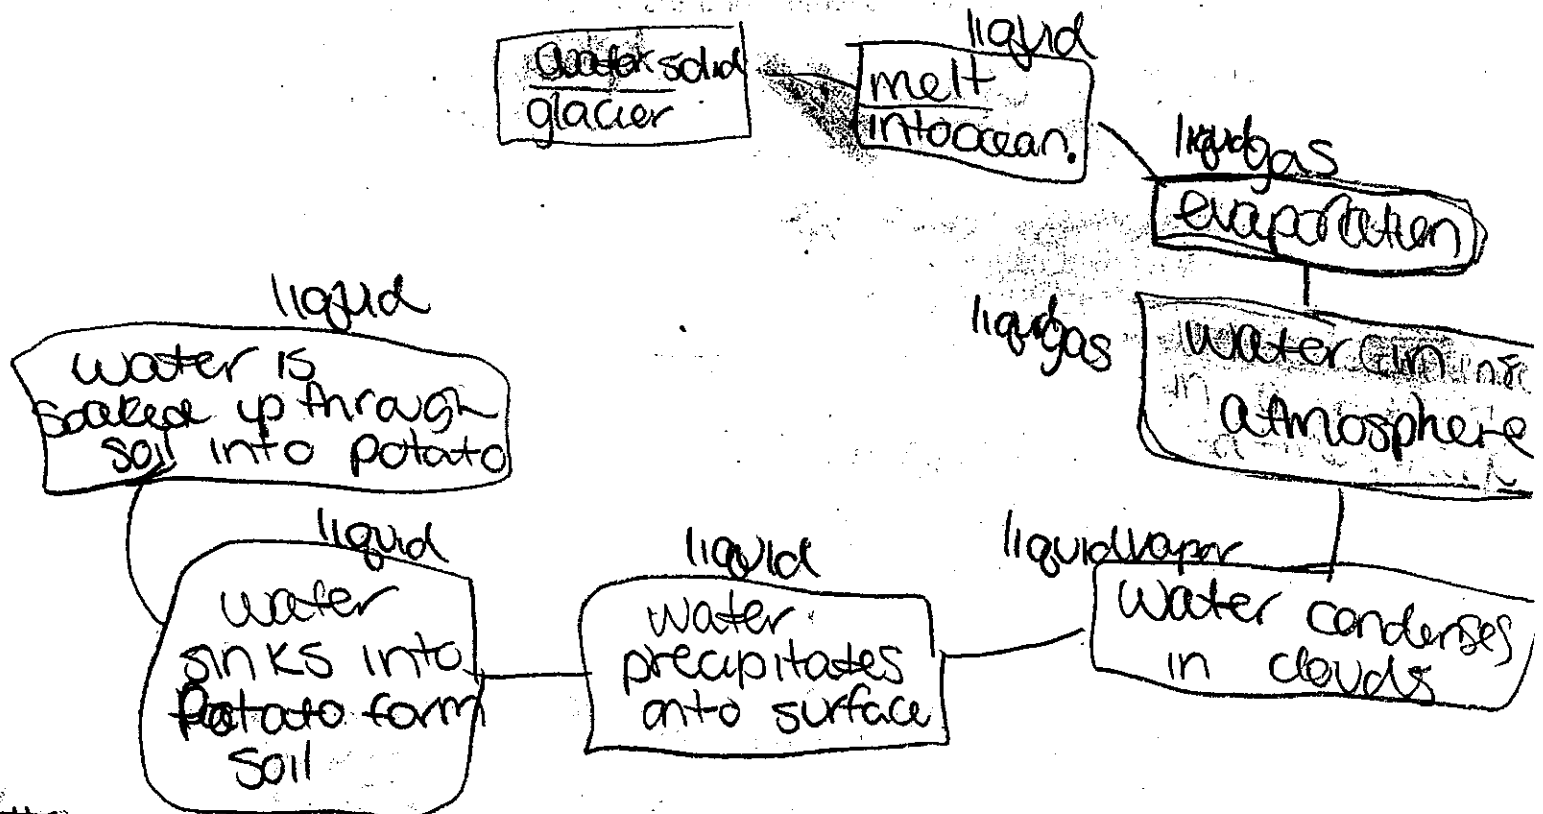 solid
glacier
liquid
melt
into ocean.
gas
evaporation
gas
water
atmosphere
liquid vapor
water condenses
in clouds
liquid
water
precipitates
onto surface
liquid
water
sinks into
Potato farm
soil
liquid
water is
soaked up through
soil into potato